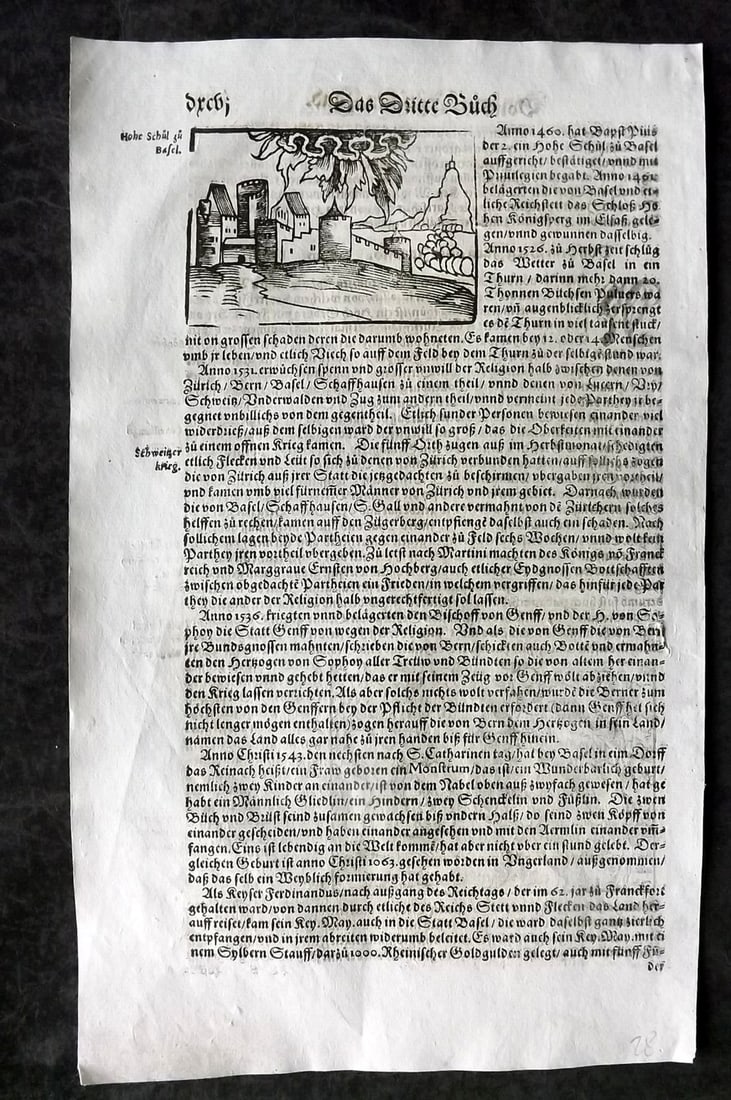 dxcvj
Das Dritte Bůch
Hohe Schůl zů
Basel.
Anno 1460. hat Bapst Pius
der 2. ein Hohe Schůl zů Basel
auffgericht/ bestätiget/ vnnd mit
Priuilegien begabt. Anno
belägerten die von Basel vnd et⸗
liche Reichstett das Schloß Ho
hen Königsperg im Elsaß gele⸗
gen/ vnnd gewunnen dasselbig.
Anno 1526. zů Herbstzeit schlůg
das Wetter zů Basel in ein
Thurn / darinn mehr dann 20.
Thonnen Büchsen Puluers wa
ren/ vñ augenblicklich zersprengt
es dē Thurn in viel tausent stuck/
mit on grossen schaden deren die darumb wohneten. Es kamen bey 12. oder 14. Menschen
vmb jr leben/ vnd etlich Viech so auff dem Feld bey dem Thurn zů der selbigē stund war.
Anno 1531. erwůchsen spenn vnd grosser vnwill der Religion halb zwischen denen von
Zürich / Bern / Basel / Schaffhausen zů einem theil / vnnd denen von Lucern / Vry/
Schweitz/ Vnderwalden vnd Zug zum andern theil/ vnnd vermeint jede Parthey jr be⸗
gegnet vnbillichs von dem gegentheil. Etlich sunder Personen bewiesen einander viel
widerdrieß/ auß dem selbigen ward der vnwill so groß / das die Oberkeiten mit einander
zů einem offnen Krieg kamen. Die fünff Orth zugen auß im Herbstmonat/ schedigten
Schweitzer
krieg.
etlich Flecken vnd Leüt so sich zů denen von Zürich verbunden hatten/ auff sollichs zogen
die von Zürich auß jrer Statt die jetzgedachten zů beschirmen/ vbergaben jren vortheil/
vnd kamen vmb viel fürnem̃er Männer von Zürich vnd jrem gebiet. Darnach wurden
die von Basel/ Schaffhausen/ S. Gall vnd andere vermahnt von dē Zürichern solches
helffen zů rechen/ kamen auff den Zügerberg/ entpfiengē daselbst auch ein schaden. Nach
sollichem lagen beyde Partheien gegen einander zů Feld sechs Wochen/ vnnd wolt kein
Parthey jren vortheil vbergeben. Zů letst nach Martini machten des Königs võ Franck
reich vnd Marggraue Ernsten von Hochberg/ auch etlicher Eydgnossen Bottschafften
zwischen obgedachtē Partheien ein Frieden/ in welchem vergriffen/ das hinfür jede Par
they die ander der Religion halb vngerechtfertigt sol lassen.
Anno 1536. kriegten vnnd belägerten den Bischoff von Genff/ vnd der H. von So⸗
phoy die Statt Genff von wegen der Religion. Vnd als die von Genff die von Bern
jre Bundsgnossen mahnten/ schrieben die von Bern/ schickten auch Botte vnd ermahn⸗
ten den Hertzogen von Sophoy aller Treüw vnd Bündten so die von altem her einan⸗
der bewiesen vnnd gehebt hetten/ das er mit seinem Zeüg vor Genff wölt abziehen/ vnnd
den Krieg lassen verrichten. Als aber solchs nichts wolt verfahen/ wurdē die Berner zum
höchsten von den Genffern bey der Pflicht der Bündten erfordert (dann Genff het sich
nicht lenger mögen enthalten) zogen herauff die von Bern dem Hertzogen in sein Land/
namen das Land alles gar nahe zů jren handen biß für Genff hinein.
Anno Christi 1543. den nechsten nach S. Catharinen tag/ hat bey Basel in eim Dorff
das Reinach heißt/ ein Fraw geboren ein Monstrum/ das ist/ ein Wunderbarlich geburt/
nemlich zwey Kinder an einander/ ist von dem Nabel oben auß zwyfach gewesen / hat ge
habt ein Männlich Gliedlin/ ein Hindern / zwey Schenckelin vnd Füßlin. Die zwen
Büch vnd Brüst seind zusamen gewachsen biß vndern Halß/ do seind zwen Köpff von
einander gescheiden/ vnd haben einander angesehen vnd mit den Aermlin einander vm̃⸗
fangen. Eins ist lebendig an die Welt kom̃ē/ hat aber nicht vber ein stund gelebt. Der⸗
gleichen Geburt ist anno Christi 1063. gesehen worden in Vngerland / außgenommen/
daß das selb ein Weyblich formierung hat gehabt.
Als Keyser Ferdinandus/ nach außgang des Reichtags / der im 62. jar zů Franckfort
gehalten ward/ von dannen durch etliche des Reichs Stett vnnd Flecken das Land her⸗
auff reiset/ kam sein Key. May. auch in die Statt Basel / die ward daselbst gantz zierlich
entpfangen/ vnd in jrem abreiten widerumb beleitet. Es ward auch sein Key. May. mit ei
nem Sylbern Stauff/ darzů 1000. Rheinischer Goldgulden gelegt/ auch mit fünff Fů⸗
der
28.